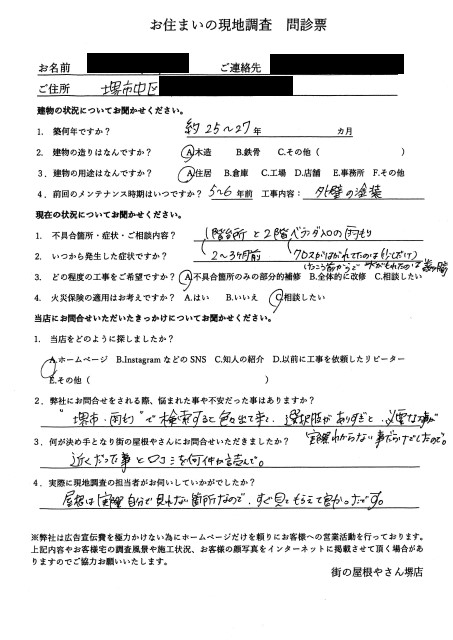 お住まいの現地調査 問診票
お名前 ご連絡先
ご住所 堺市中区
建物の状況についてお聞かせください。
1. 築何年ですか? 約25～27年 カ月
2. 建物の造りはなんですか? A.木造 B.鉄骨 C.その他( )
3. 建物の用途はなんですか? A.住居 B.倉庫 C.工場 D.店舗 E.事務所 F.その他
4. 前回のメンテナンス時期はいつですか? 5～6年前 工事内容: 外壁の塗装
現在の状況についてお聞かせください。
1. 不具合箇所・症状・ご相談内容? 1階台所と2階ベランダ入口の雨もり
2. いつから発生した症状ですか? 2～3ヶ月前 クロスがはがれてたのは
3. どの程度の工事をご希望ですか? A.不具合箇所のみの部分的補修 B.全体的に改修 C.相談したい
4. 火災保険の適用はお考えですか? A.はい B.いいえ C.相談したい
当店にお問合せいただいたきっかけについてお聞かせください。
1. 当店をどのように探しましたか?
A.ホームページ B.InstagramなどのSNS C.知人の紹介 D.以前に工事を依頼したリピーター
E.その他( )
2. 弊社にお問合せをされる際、悩まれた事や不安だった事はありますか?
"堺市・雨もり"で検索すると色々出て来て、選択肢がありすぎと、必要な事が
実際わからない事だらけでしたので。
3. 何が決め手となり街の屋根やさんにお問合せいただきましたか?
近くだった事と口コミを何件か読んで。
4. 実際に現地調査の担当者がお伺いしていかがでしたか?
屋根は実際自分で見れない箇所なので、すぐ見てもらえて良かったです。
※弊社は広告宣伝費を極力かけない為にホームページだけを頼りにお客様への営業活動を行っております。
上記内容やお客様宅の調査風景や施工状況、お客様の顔写真をインターネットに掲載させて頂く場合があ
りますのでご協力お願いいたします。
街の屋根やさん堺店